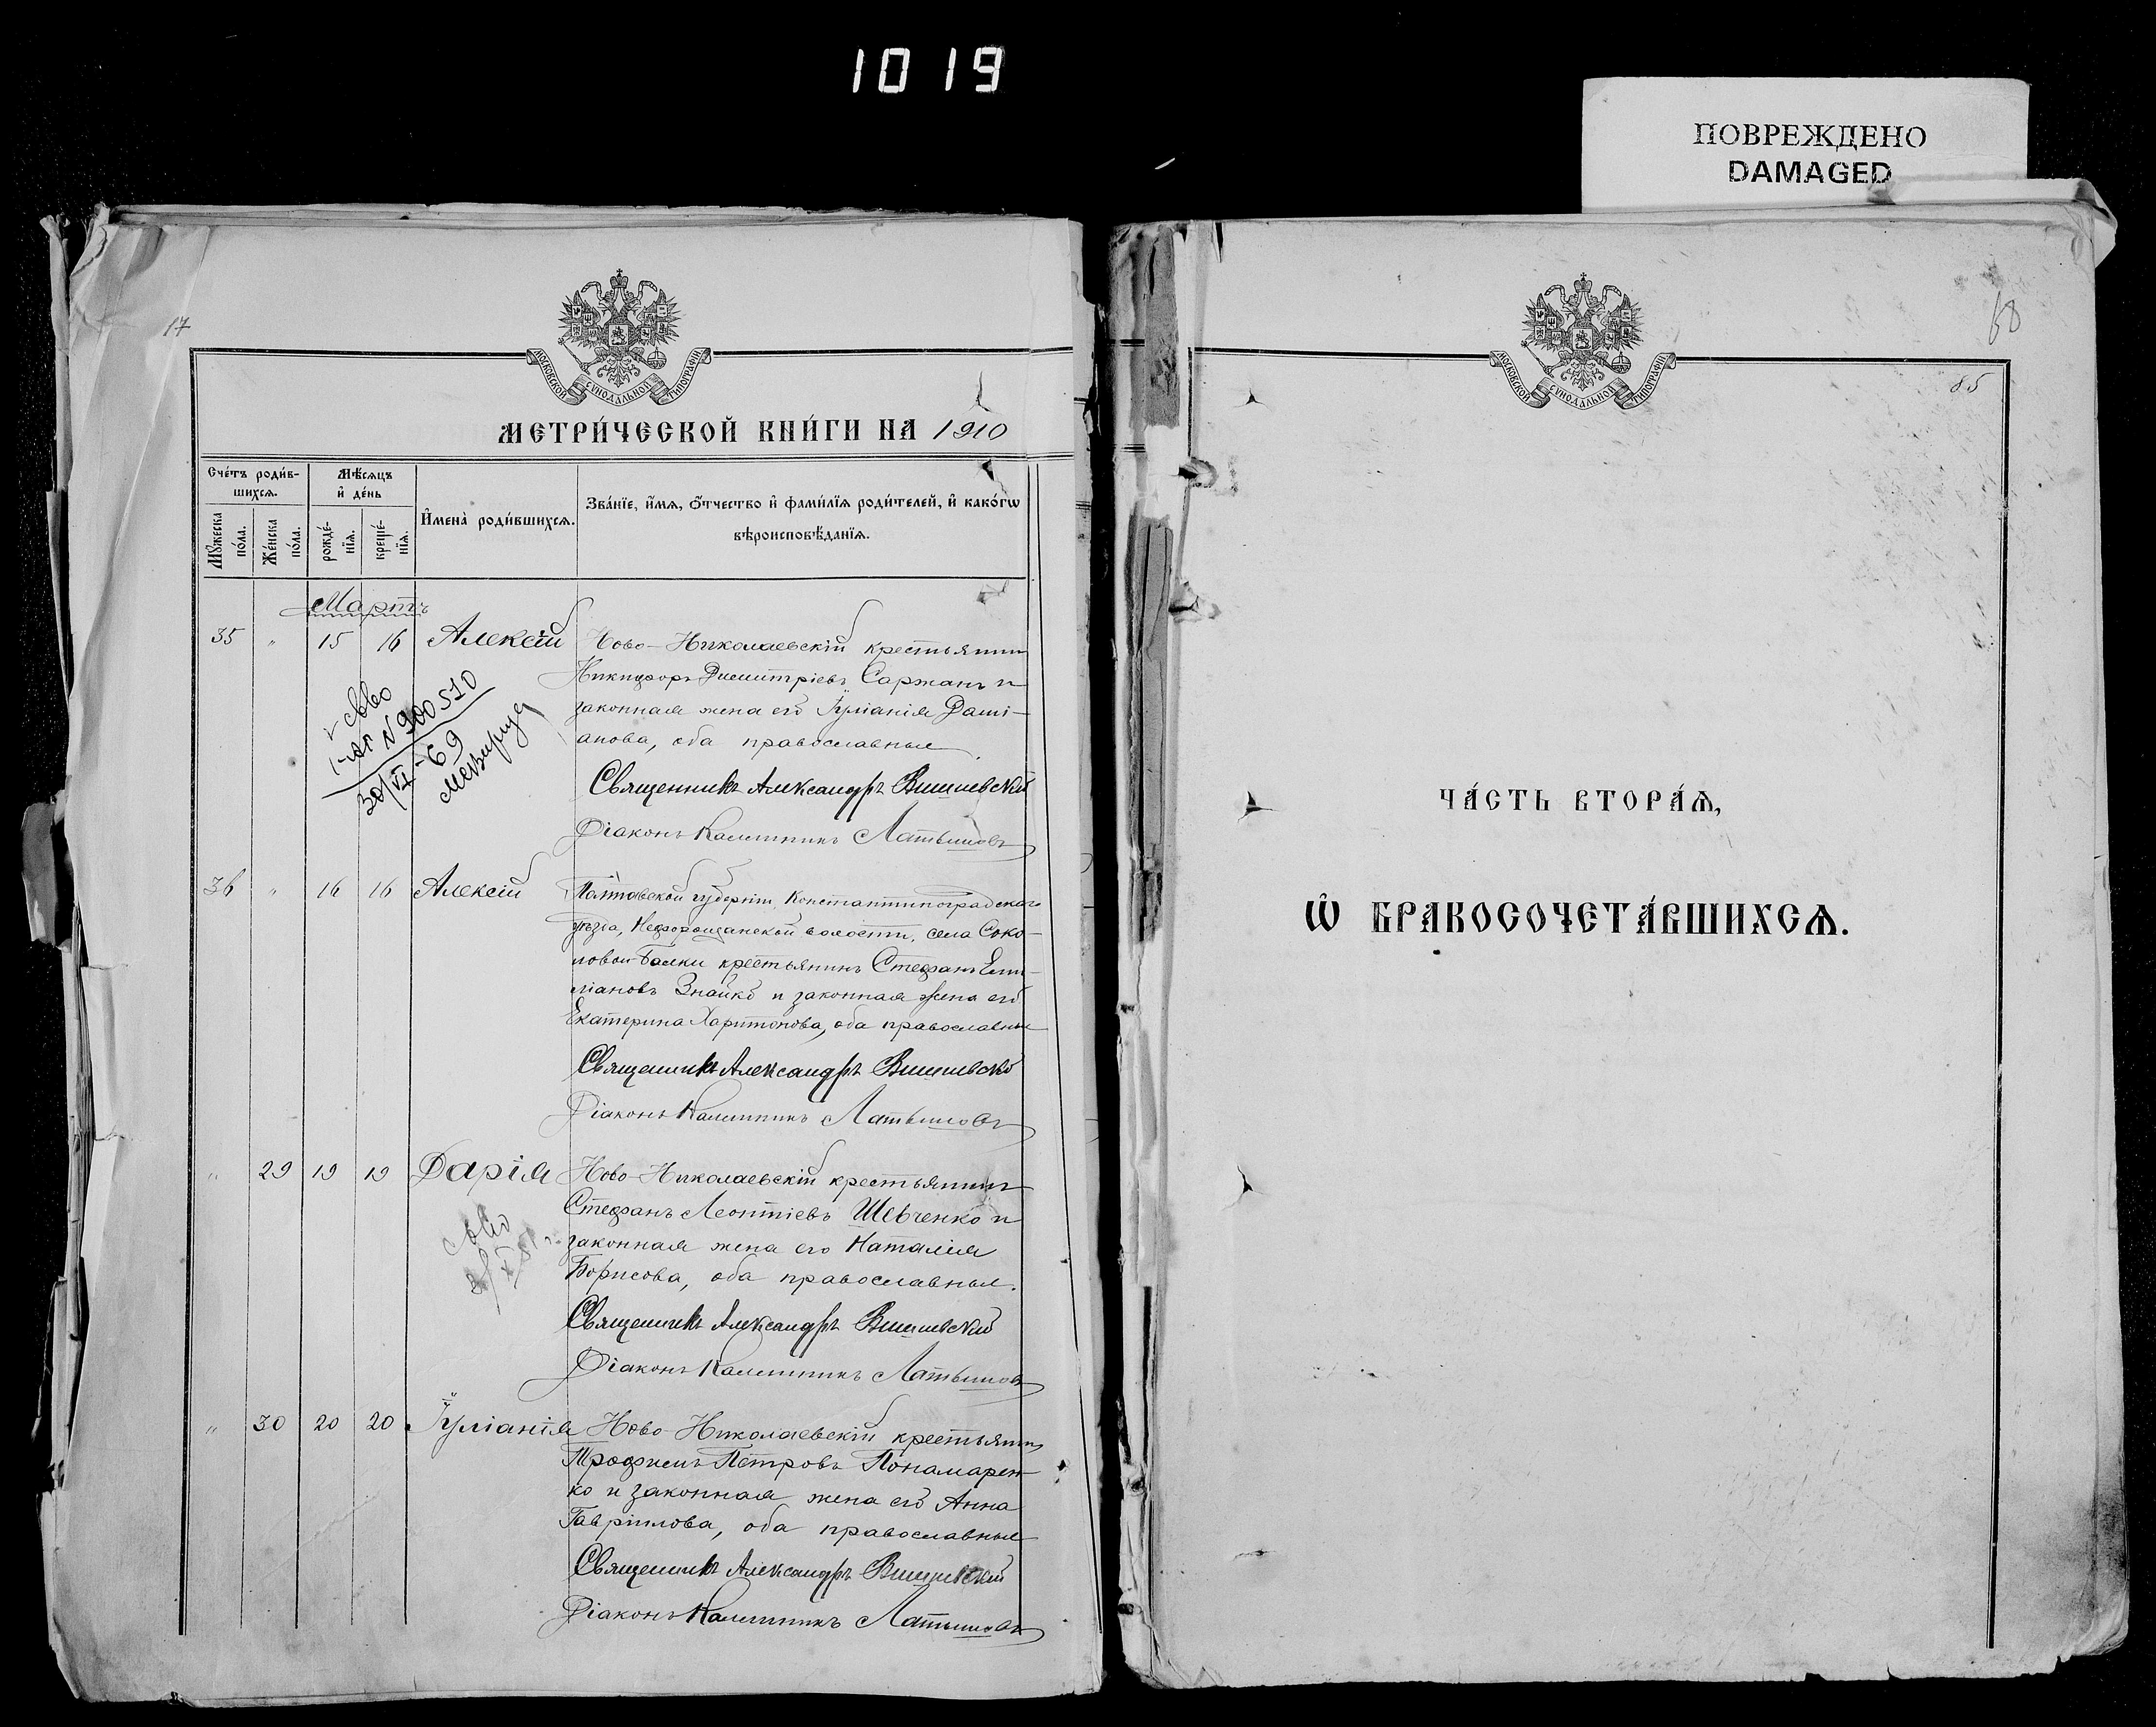 1019
ПОВРЕЖДЕНО
DAMAGED
17
МОСКОВСКОЙ СУНОДАЛЬНОЙ ТИПОГРАФІИ
МЕТРИ́ЧЕСКОЙ КНИ́ГИ НА 1910
Сче́тъ роди́в-
шихсѧ.
Мꙋ́жеска
по́ла.
Же́нска
по́ла.
Мѣ́сѧцъ
и҆ де́нь
рожде́-
нїѧ.
креще́-
нїѧ.
И҆мена̀ роди́вшихсѧ.
Зва́нїе, и҆́мѧ, ѻ҆́тчество и҆ фами́лїѧ роди́телей, и҆ како́гѡ
вѣроисповѣ́данїѧ.
Мартъ
35 " 15 16 Алексій Ново-Николаевскій крестьянинъ
Никифоръ Димитріевъ Саржанъ и
законная жена его Іуліанія Дамі-
анова, оба православные
Священникъ Александръ Вишневскій
Діаконъ Калинникъ Латышовъ
N 900510
30/VI-69
36 " 16 16 Алексій Полтавской губерніи, Константиноградскаго
уѣзда, Нехворощанской волости, села Соко-
ловой-Балки крестьянинъ Стефанъ Еми-
ліановъ Знайко и законная жена его
Екатерина Харитонова, оба православные
Священникъ Александръ Вишневскій
Діаконъ Калинникъ Латышовъ
" 29 19 19 Дарія Ново-Николаевскій крестьянинъ
Стефанъ Леонтіевъ Шевченко и
законная жена его Наталія
Борисова, оба православные.
Священникъ Александръ Вишневскій
Діаконъ Калинникъ Латышовъ
" 30 20 20 Іуліанія Ново-Николаевскій крестьянинъ
Трофимъ Петровъ Понамарен-
ко и законная жена его Анна
Гавріилова, оба православные
Священникъ Александръ Вишневскій
Діаконъ Калинникъ Латышовъ
68
МОСКОВСКОЙ СУНОДАЛЬНОЙ ТИПОГРАФІИ
85
ЧА́СТЬ ВТОРА́Ѧ,
Ѡ҆ БРАКОСОЧЕТА́ВШИХСѦ.